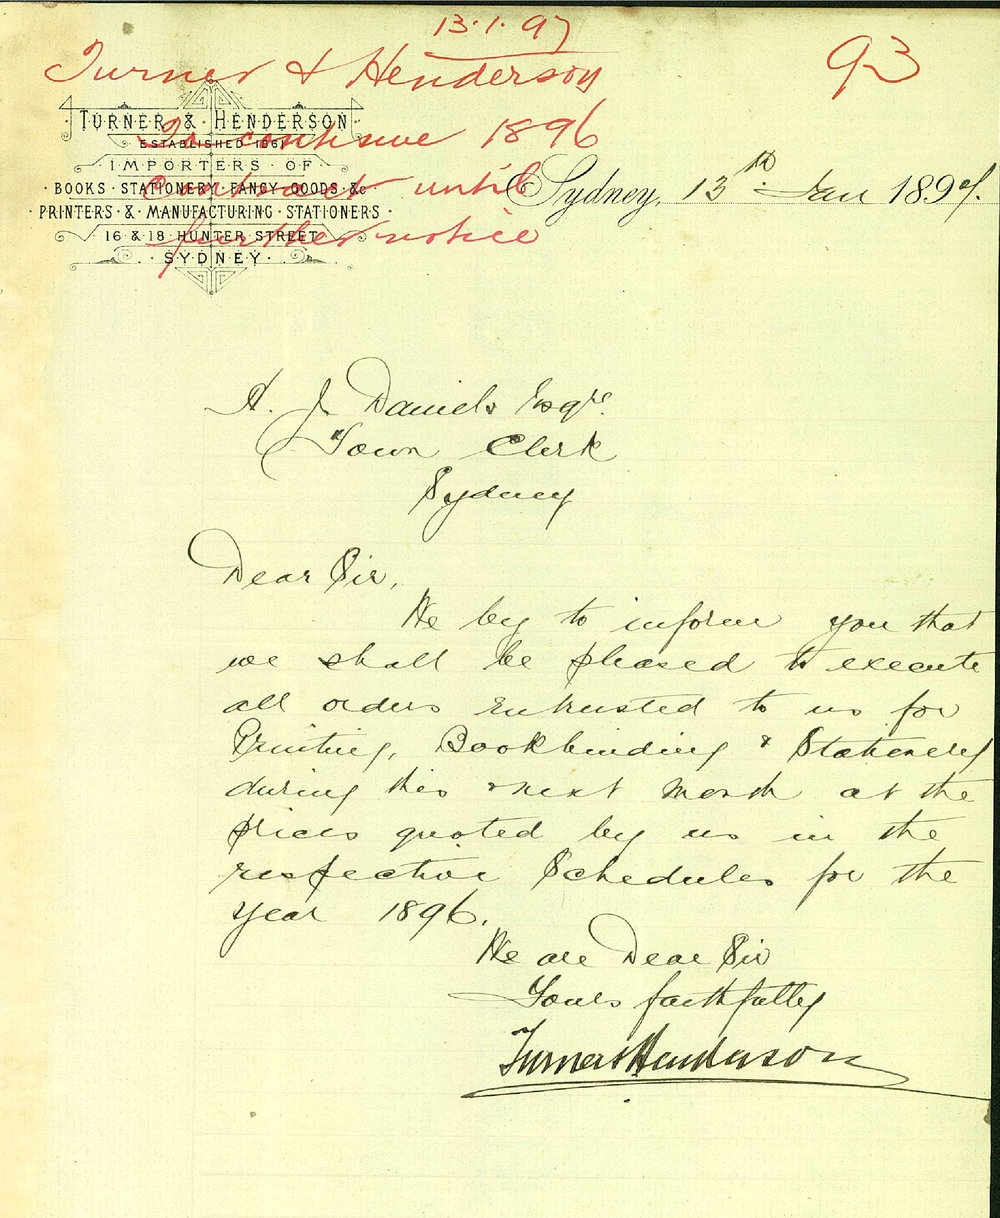 13.1.97
93
Turner & Henderson
To continue 1896
contract until
further notice
TURNER & HENDERSON
ESTABLISHED 1861
IMPORTERS OF
BOOKS · STATIONERY · FANCY · GOODS · &c
PRINTERS · & · MANUFACTURING · STATIONERS ·
16 & 18 · HUNTER STREET
· SYDNEY ·
Sydney, 13th Jan 1897.
A. J Daniels Esqre.
Town Clerk
Sydney
Dear Sir,
We beg to inform you that
we shall be pleased to execute
all orders entrusted to us for
Printing, Bookbinding & Stationery
during this & next month at the
prices quoted by us in the
respective Schedules for the
year 1896.
We are Dear Sir
Yours faithfully
Turner & Henderson